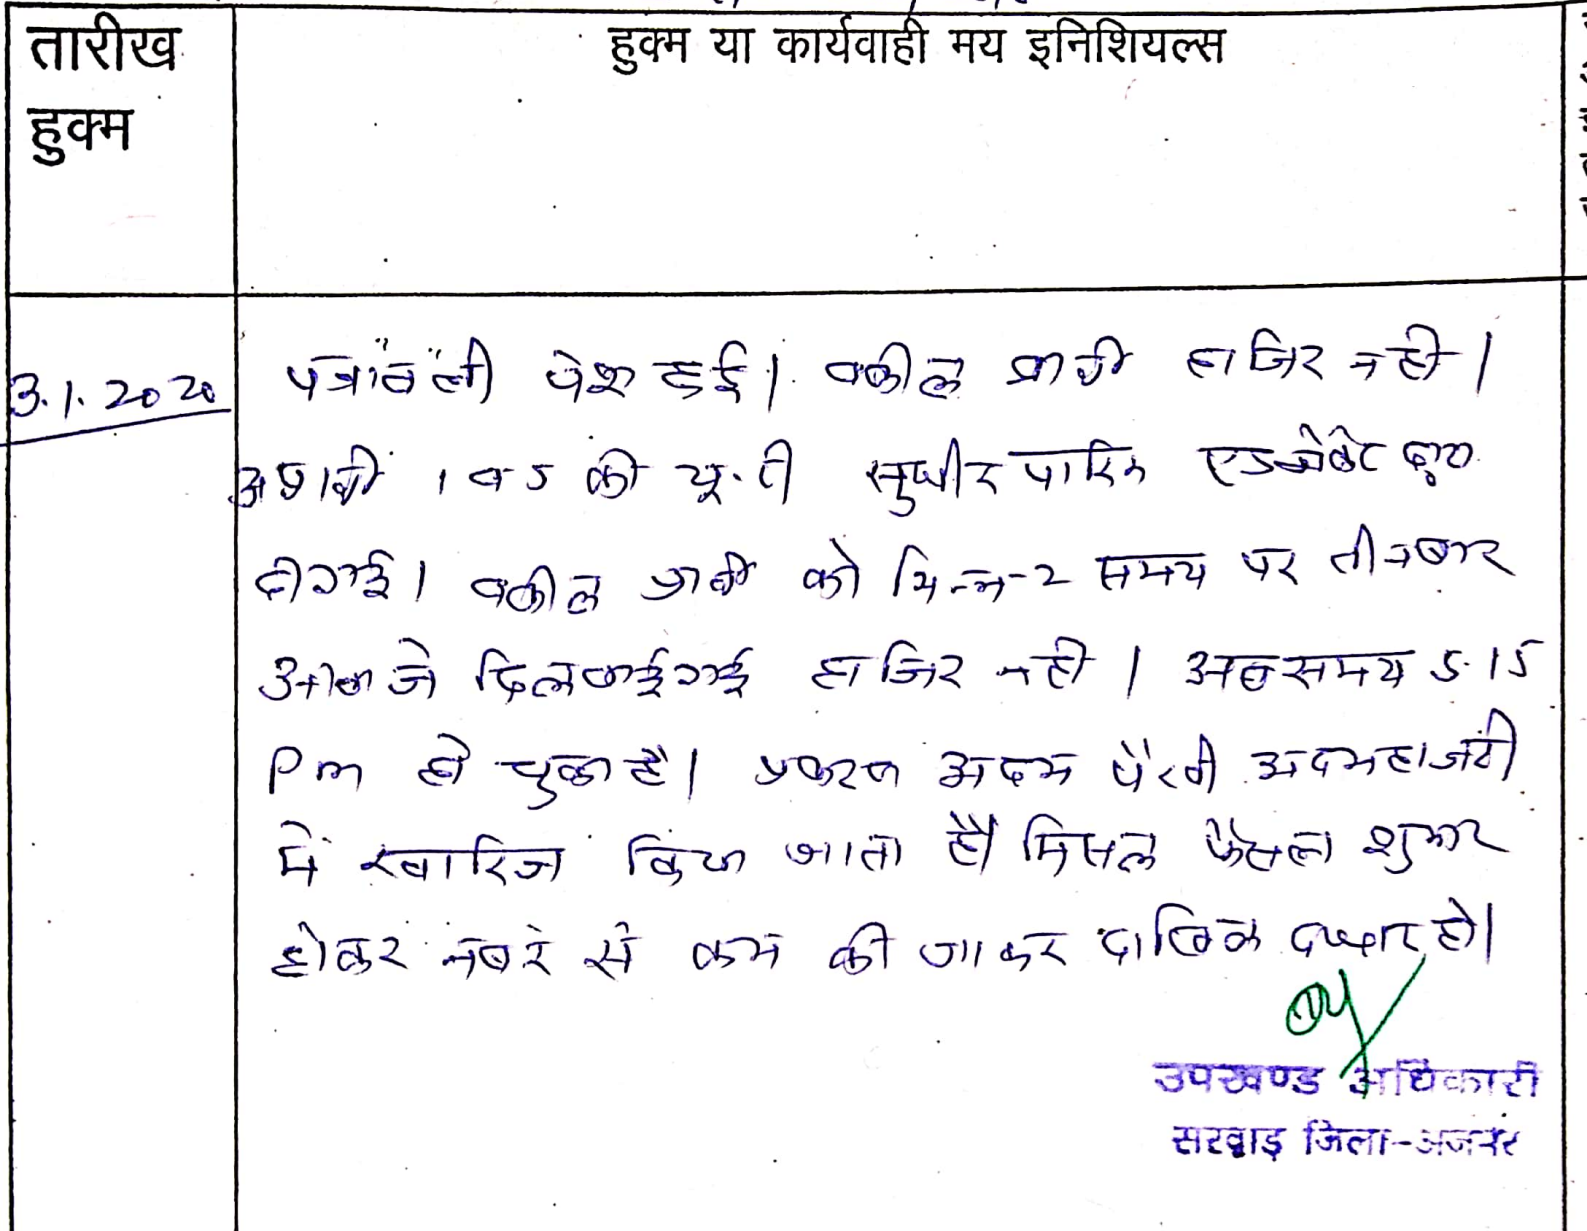 तारीख
हुक्म
हुक्म या कार्यवाही मय इनिशियल्स
3.1.2020
पत्रावली पेश हुई। वकील प्रार्थी हाजिर नही।
अप्रार्थी 1 व 5 की यू.टी सुधीर पारिक एडवोकेट द्वारा
दी गई। वकील प्रार्थी को भिन्न-2 समय पर तीन बार
आवाजे दिलवाई गई हाजिर नही। अब समय 5.15
Pm हो चुका है। प्रकरण अदम पैरवी अदम हाजरी
में खारिज किया जाता है। मिसल फैसला शुमार
होकर नंबर से कम की जाकर दाखिल दफ्तर हो।
उपखण्ड अधिकारी
सरवाड़ जिला-अजमेर